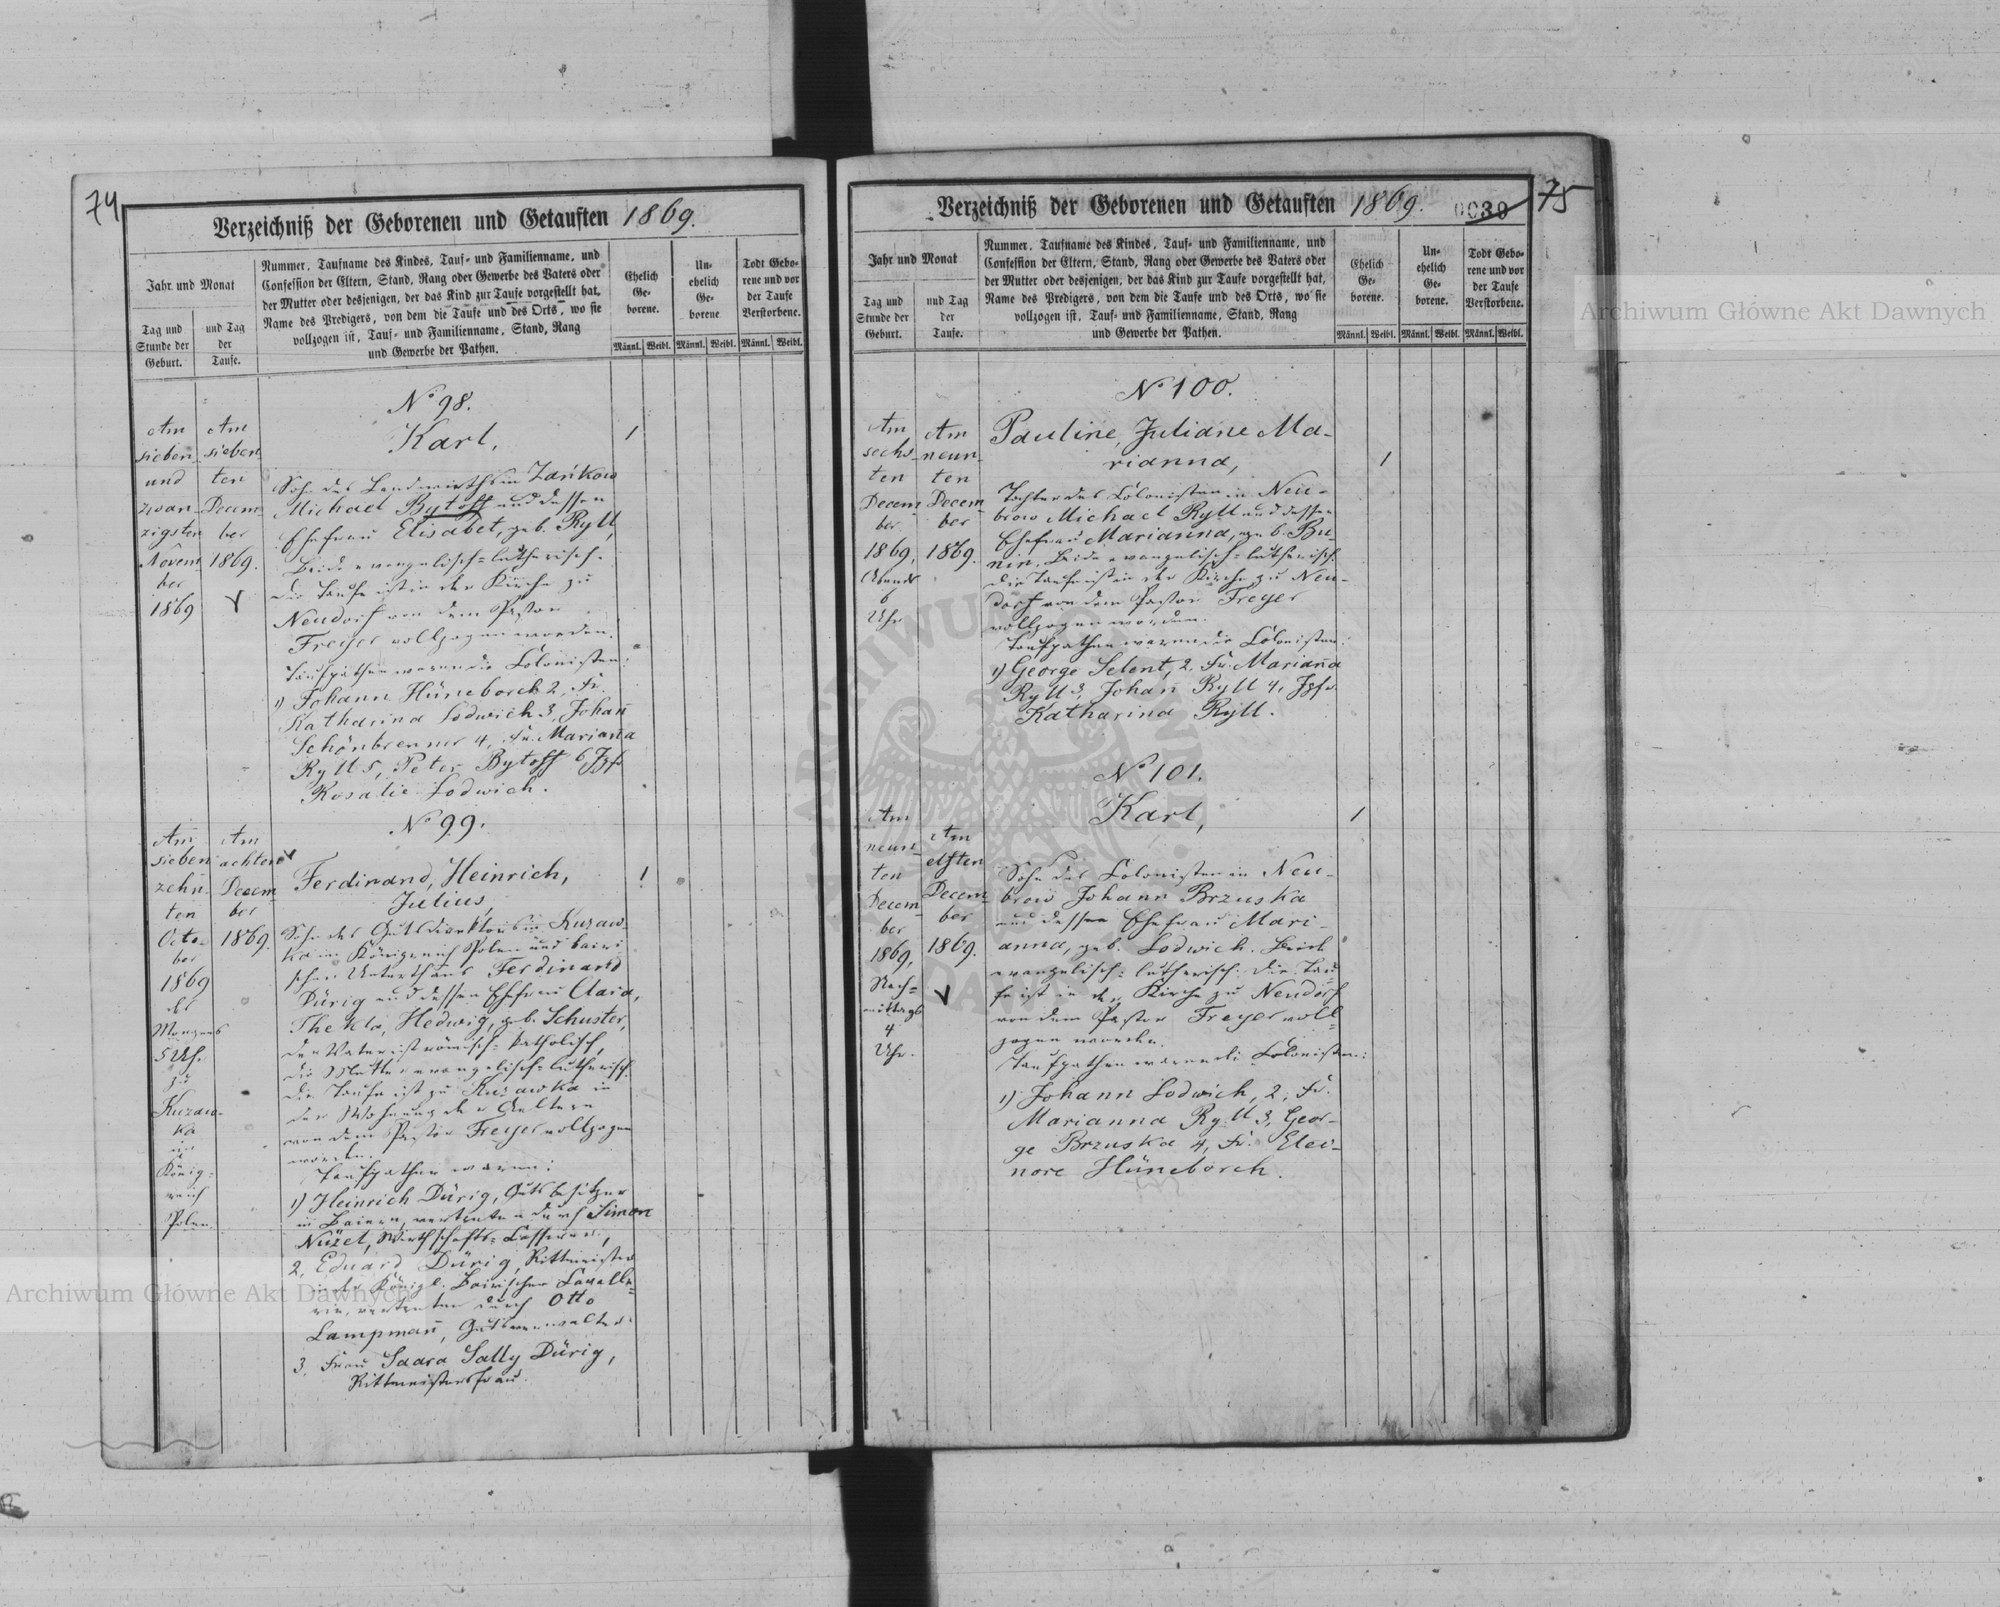 74
Verzeichniß der Geborenen und Getauften 1869.
Jahr und Monat
Tag und
Stunde der
Geburt.
und Tag
der
Taufe.
Nummer, Taufname des Kindes, Tauf- und Familienname, und
Confession der Eltern, Stand, Rang oder Gewerbe des Vaters oder
der Mutter oder desjenigen, der das Kind zur Taufe vorgestellt hat,
Name des Predigers, von dem die Taufe und des Orts, wo sie
vollzogen ist, Tauf- und Familienname, Stand, Rang
und Gewerbe der Pathen.
Ehelich
Ge-
borene.
Un-
ehelich
Ge-
borene
Todt Gebo-
rene und vor
der Taufe
Verstorbene.
Männl. Weibl. Männl. Weibl. Männl. Weibl.
Am
sieben-
und
zwan-
zigsten
Novem-
ber
1869
Am
sieben
ten
Decem-
ber
1869.
No 98.
Karl,
Sohn des Landwirths in Zańkow
Michael Bytoff und dessen
Ehefrau Elisabet, geb. Ryll,
Beide evangelisch-lutherisch.
Die Taufe ist in der Kirche zu
Neudorf von dem Pastor
Freyer vollzogen worden.
Taufpathen waren die Colonisten:
1) Johann Hüneborch 2, Fr.
Katharina Lodwich 3, Johañ
Schönbrenner 4, Fr. Mariaña
Ryll 5, Peter Bytoff 6 Jgfr
Rosalie Lodwich.
1
Am
sieben
zehn-
ten
Octo-
ber
1869
des
Morgens
5 Uhr
zu
Kuzaw-
ka
im
König-
reich
Polen.
Am
achten
Decem
ber
1869.
No 99.
Ferdinand, Heinrich,
Julius,
Sohn des Gutsdirektors in Kuzaw-
ka im Königreich Polen und bairi
schen Unterthans Ferdinand
Dürig und dessen Ehefrau Clara,
Thekla, Hedwig, geb. Schuster,
Der Vater ist römisch-katholisch,
die Mutter evangelisch-lutherisch.
Die Taufe ist zu Kuzawka in
der Wohnung der Aeltern
von dem Pastor Freyer vollzogen
worden.
Taufpathen waren:
1) Heinrich Dürig, Gutsbesitzer
in Baiern, vertreten durch Simon
Nüzel, Wirthschafts-Cassierer,
2, Eduard Dürig, Rittmeister
in der Königl. Bairischen Cavalle-
rie, vertreten durch Otto
Lampmañ, Gutsverwalter
3, Frau Saara Sally Dürig,
Rittmeistersfrau.
1
75
0039
Verzeichniß der Geborenen und Getauften 1869.
Jahr und Monat
Tag und
Stunde der
Geburt.
und Tag
der
Taufe.
Nummer, Taufname des Kindes, Tauf- und Familienname, und
Confession der Eltern, Stand, Rang oder Gewerbe des Vaters oder
der Mutter oder desjenigen, der das Kind zur Taufe vorgestellt hat,
Name des Predigers, von dem die Taufe und des Orts, wo sie
vollzogen ist, Tauf- und Familienname, Stand, Rang
und Gewerbe der Pathen.
Ehelich
Ge-
borene.
Un-
ehelich
Ge-
borene.
Todt Gebo-
rene und vor
der Taufe
Verstorbene.
Männl. Weibl. Männl. Weibl. Männl. Weibl.
Am
sechs-
ten
Decem-
ber
1869,
Abends
6
Uhr
Am
neun-
ten
Decem
ber
1869.
No 100.
Pauline, Juliane Ma-
rianna,
Tochter des Colonisten in Neu-
brow Michael Ryll und dessen
Ehefrau Marianna, geb. Bu-
nin, Beide evangelisch-lutherisch.
Die Taufe ist in der Kirche zu Neu-
dorf von dem Pastor Freyer
vollzogen worden.
Taufpathen waren die Colonisten:
1) George Selent, 2, Fr. Mariaña
Ryll 3, Johañ Ryll 4, Jgfr.
Katharina Ryll.
1
Am
neun-
ten
Decem-
ber
1869,
Nach-
mittags
4
Uhr.
Am
elften
Decem-
ber
1869.
No 101.
Karl,
Sohn des Colonisten in Neu-
brow Johann Brzuska
und dessen Ehefrau Mari-
anna, geb. Lodwich. Beide
evangelisch-lutherisch. Die Tau-
fe ist in der Kirche zu Neudorf
von dem Pastor Freyer voll-
zogen worden.
Taufpathen waren die Colonisten:
1) Johann Lodwich, 2, Fr.
Marianna Ryll 3, Geor-
ge Brzuska 4, Fr. Eleo-
nore Hüneborch.
1
Archiwum Główne Akt Dawnych
Archiwum Główne Akt Dawnych